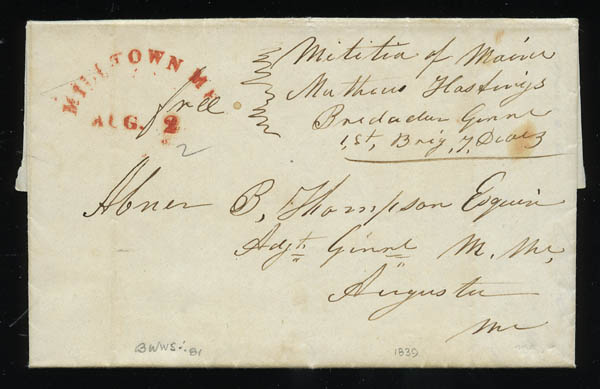 MILLTOWN ME
AUG. 2
free
2
Militia of Maine
Matheus Hastings
Bredader Ginnl
1,st, Brig, 7, Divi
Abner B, Thompson Esquir
Adjt Ginnl M. Me,
Augusta
Me
BWWS
1839